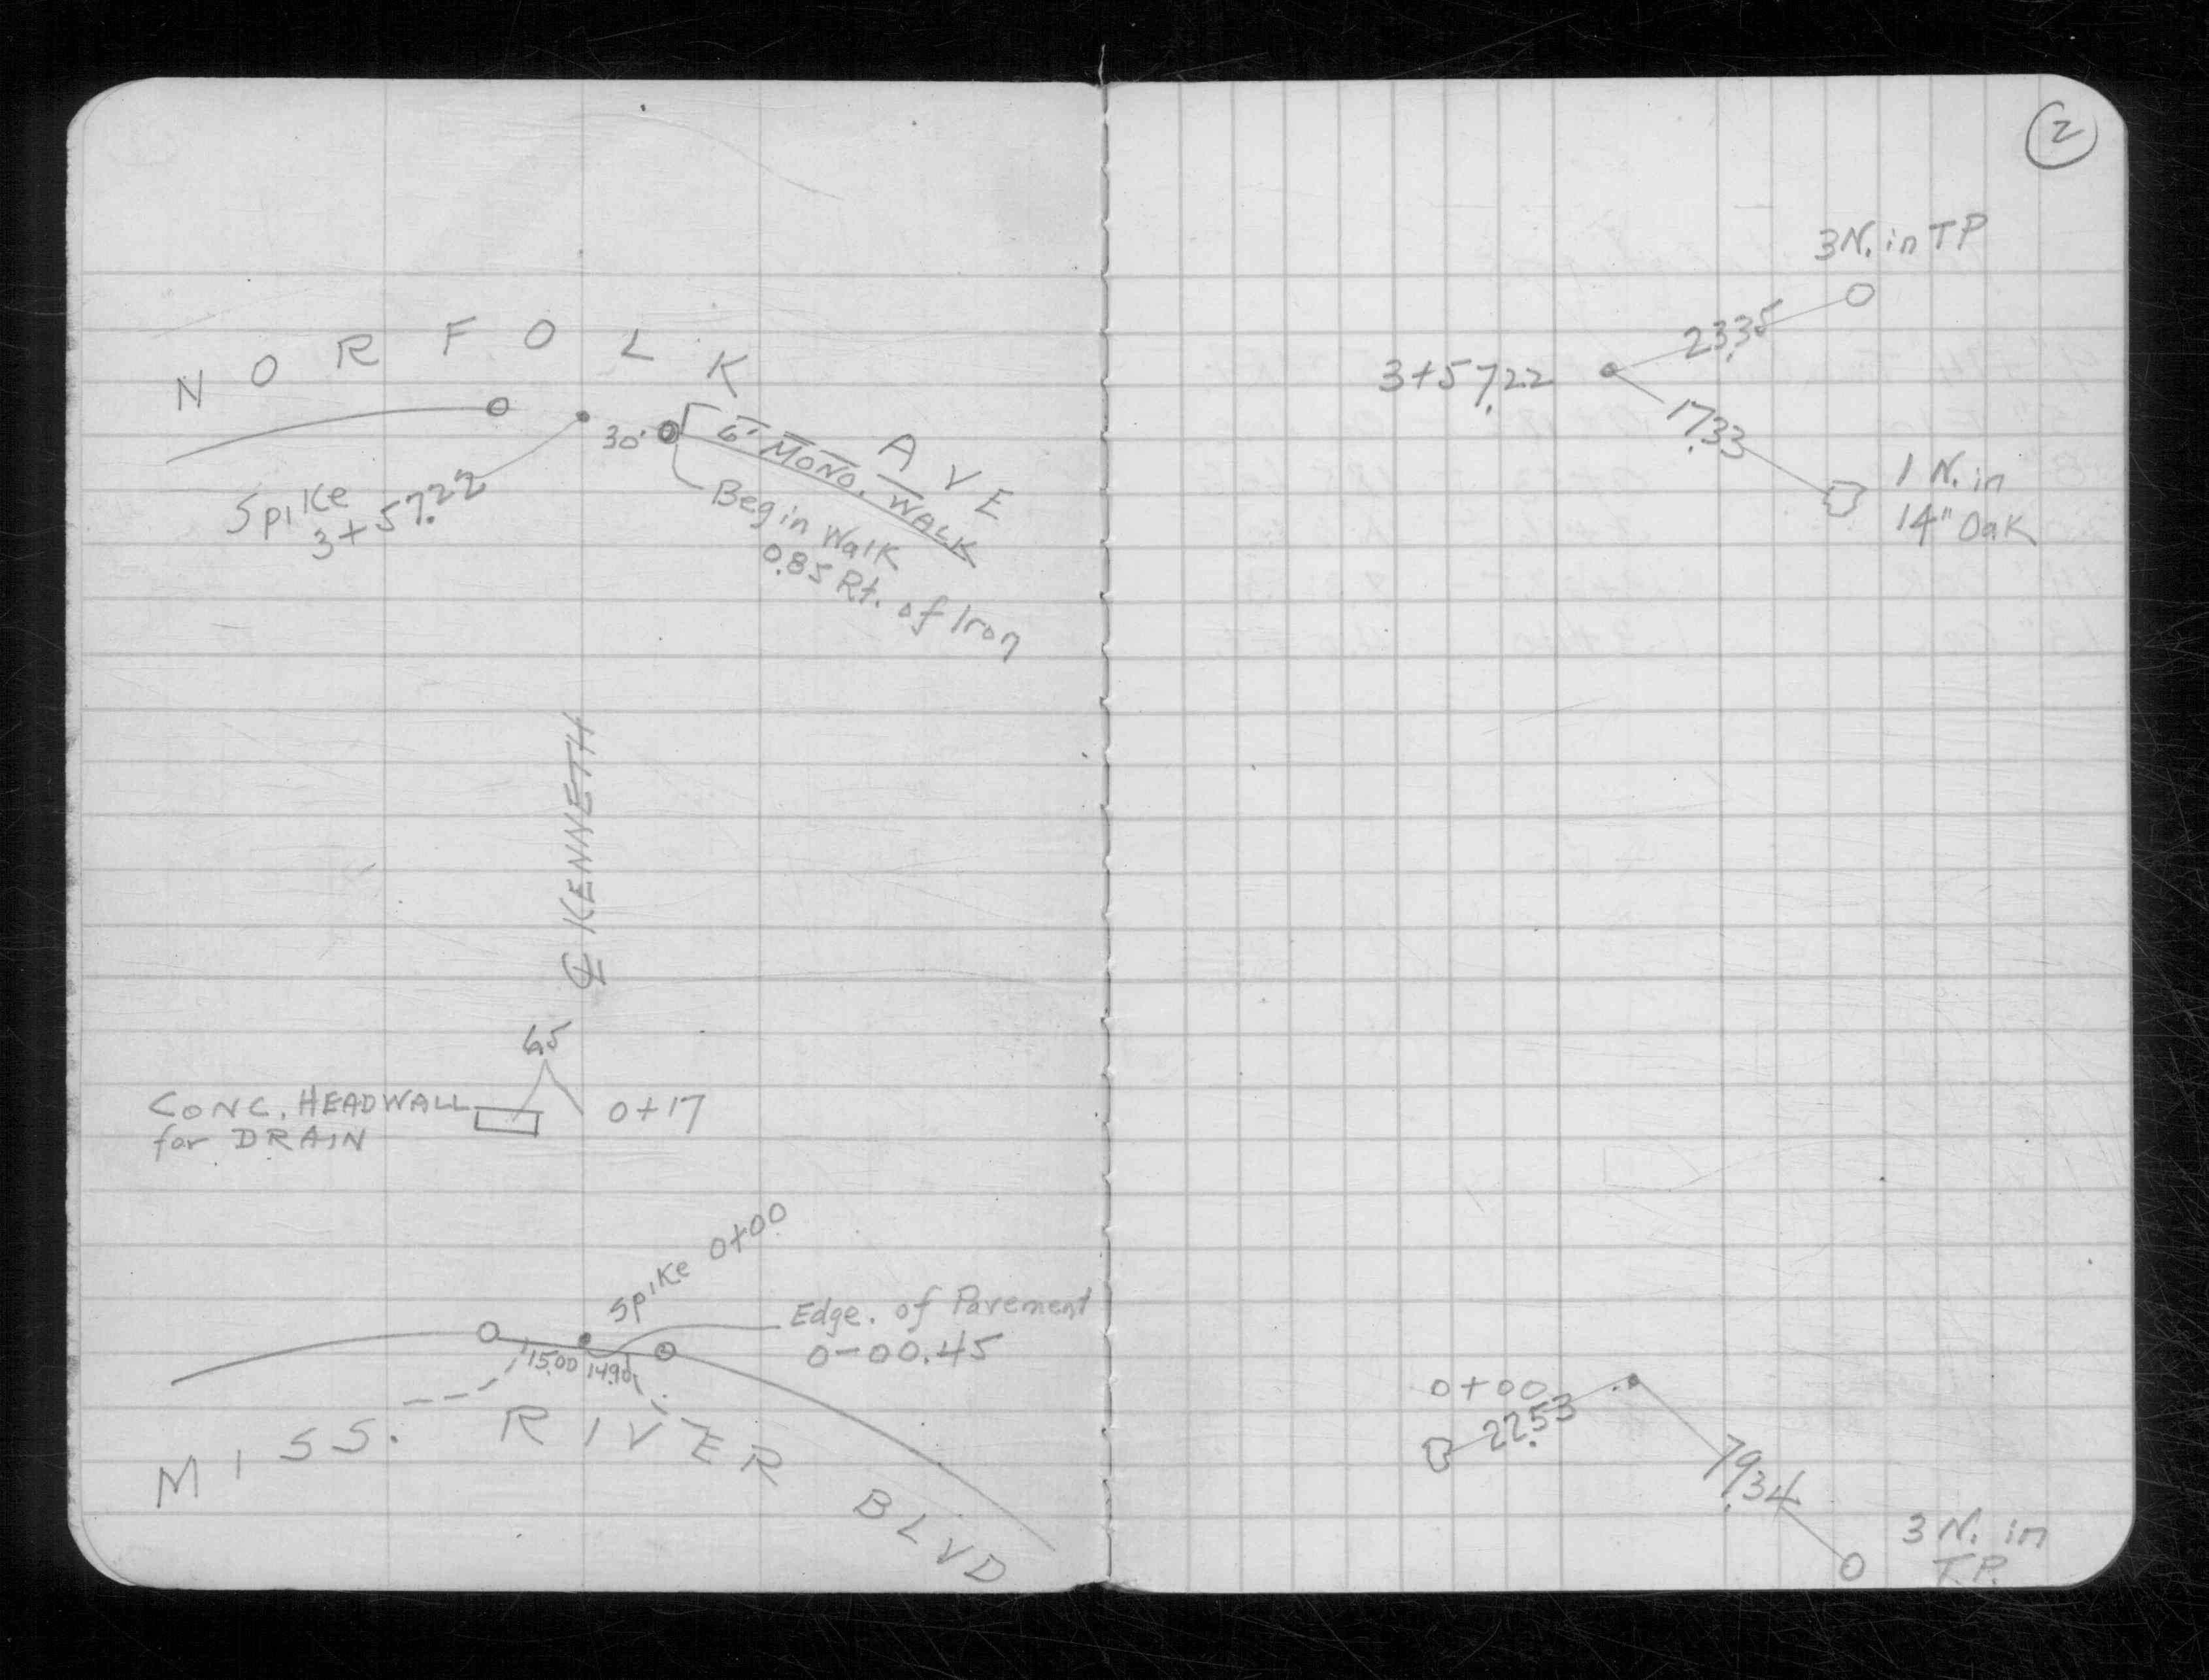 NORFOLK AVE
30'
6' MONO. WALK
Spike
3+57.22
Begin Walk
0.85 Rt. of Iron
℄ KENNETH
6.5
CONC. HEADWALL
for DRAIN
0+17
Spike 0+00
Edge. of Pavement
0-00.45
15.00 14.90
MISS. RIVER BLVD
2
3N. in TP
23.35
3+57.22
17.33
1 N. in
14" Oak
0+00
22.53
79.34
3 N. in
T.P.